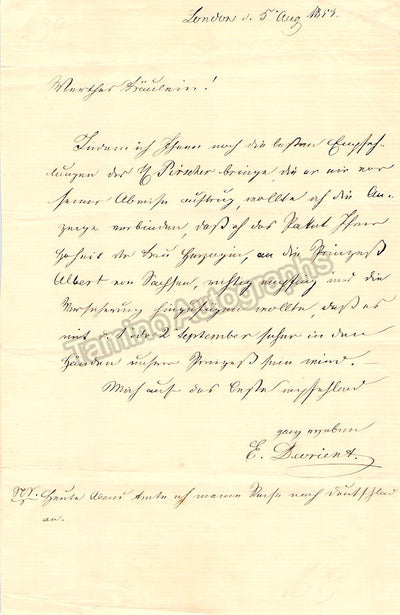 London d. 5t Aug 1853.
Werthes Fräulein!
Indem ich Ihnen noch die besten Empfeh-
lungen des H Pirscher bringe, die er mir vor
seiner Abreise auftrug, wollte ich die An-
zeige verbinden, daß ich das Paket Ihrer
Hoheit der Frau Herzogin, an die Prinzeß
Albert von Sachsen, richtig empfing und die
Versicherung hinzufügen wollte, daß es
mit d. 2 September sicher in den
Händen unserer Prinzeß sein wird.
Mich auf das beste empfehlend
ganz ergeben
E. Devrient.
NS. Heute Abend trete ich meine Reise nach Deutschland
an.
TaminoAutographs